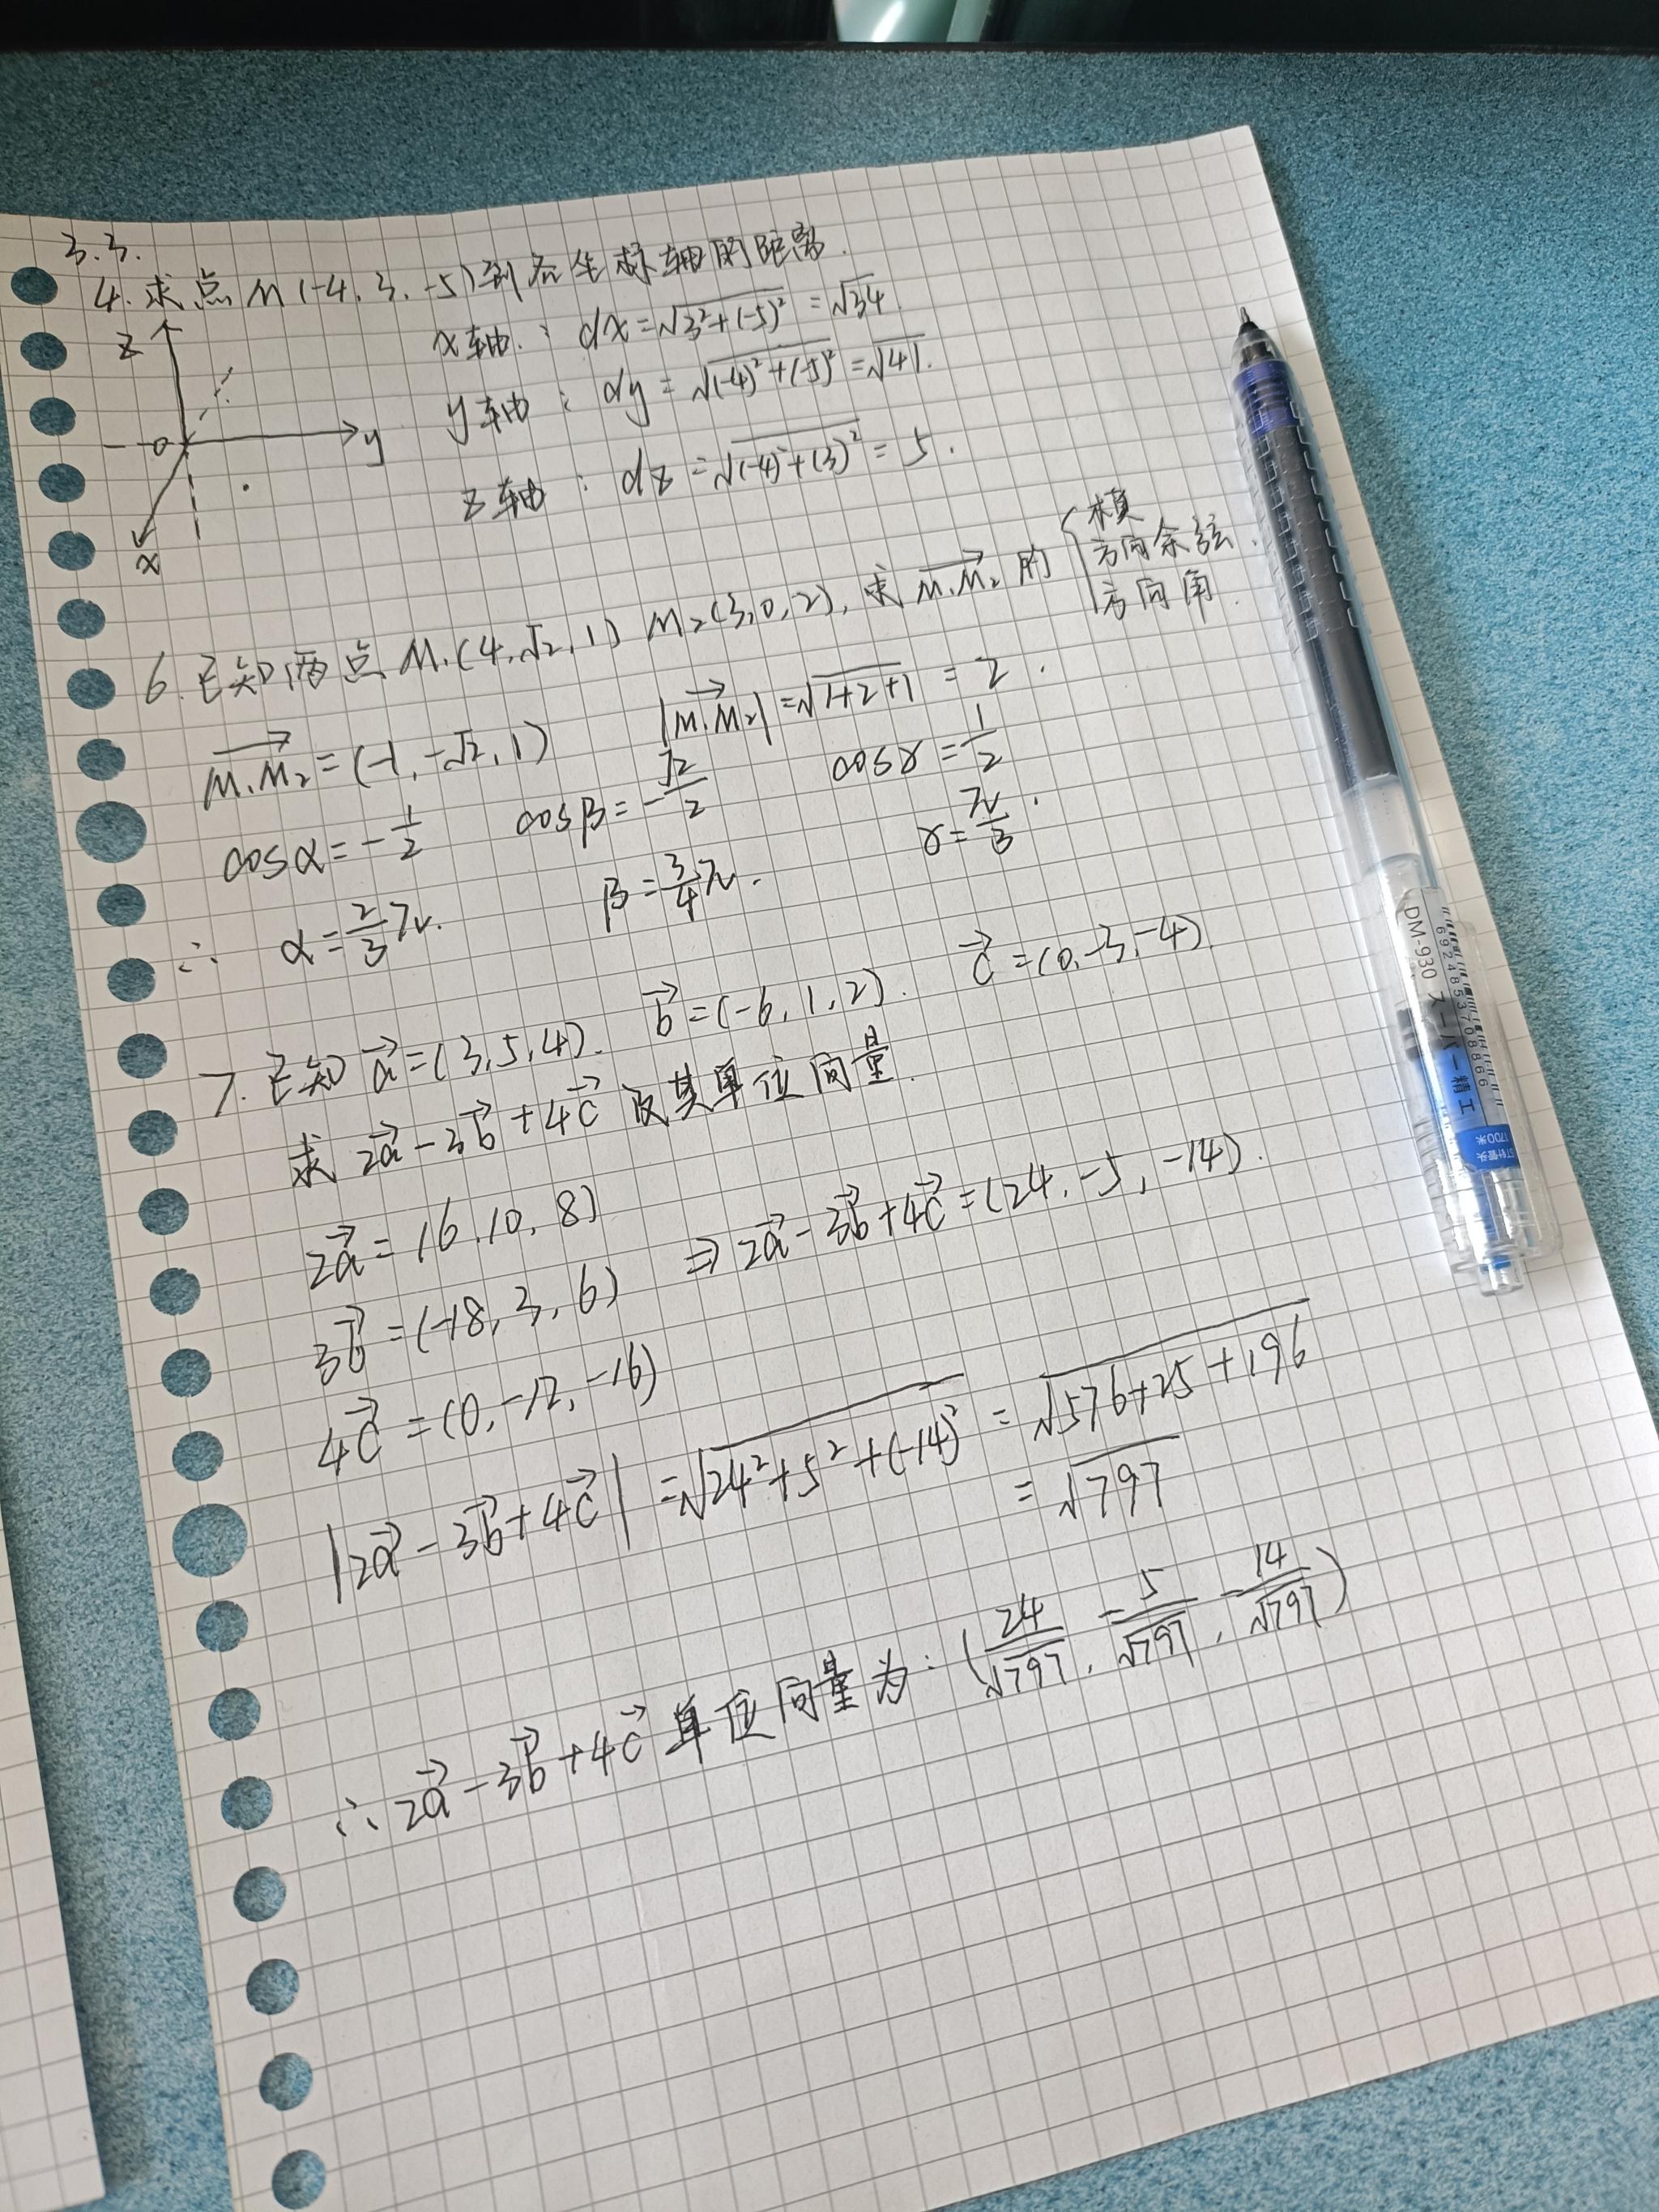 3.3.
4.求点M(-4,3,-5)到各坐标轴的距离.
z
x轴: dx=√(3²+(-5)²)=√34.
y轴: dy=√((-4)²+(-5)²)=√41.
o y
z轴: dz=√((-4)²+(3)²)=5.
x
6.已知两点M₁(4,√2,1) M₂(3,0,2),求M₁M₂的{模
方向余弦.
方向角.
M₁M₂=(-1,-√2,1) |M₁M₂|=√(1+2+1)=2.
cosα=-1/2 cosβ=-√2/2 cosγ=1/2
∴ α=2/3π. β=3/4π. γ=π/3.
7.已知a=(3,5,4). b=(-6,1,2). c=(0,-3,-4).
求2a-3b+4c及其单位向量.
2a=(6,10,8)
3b=(-18,3,6) ⇒2a-3b+4c=(24,-5,-14).
4c=(0,-12,-16)
|2a-3b+4c|=√(24²+5²+(-14)²)=√(576+25+196)
=√797
∴2a-3b+4c单位向量为:(24/√797,-5/√797,-14/√797)
DM-930 スーパー精工
6924853708866
1700米
针管头